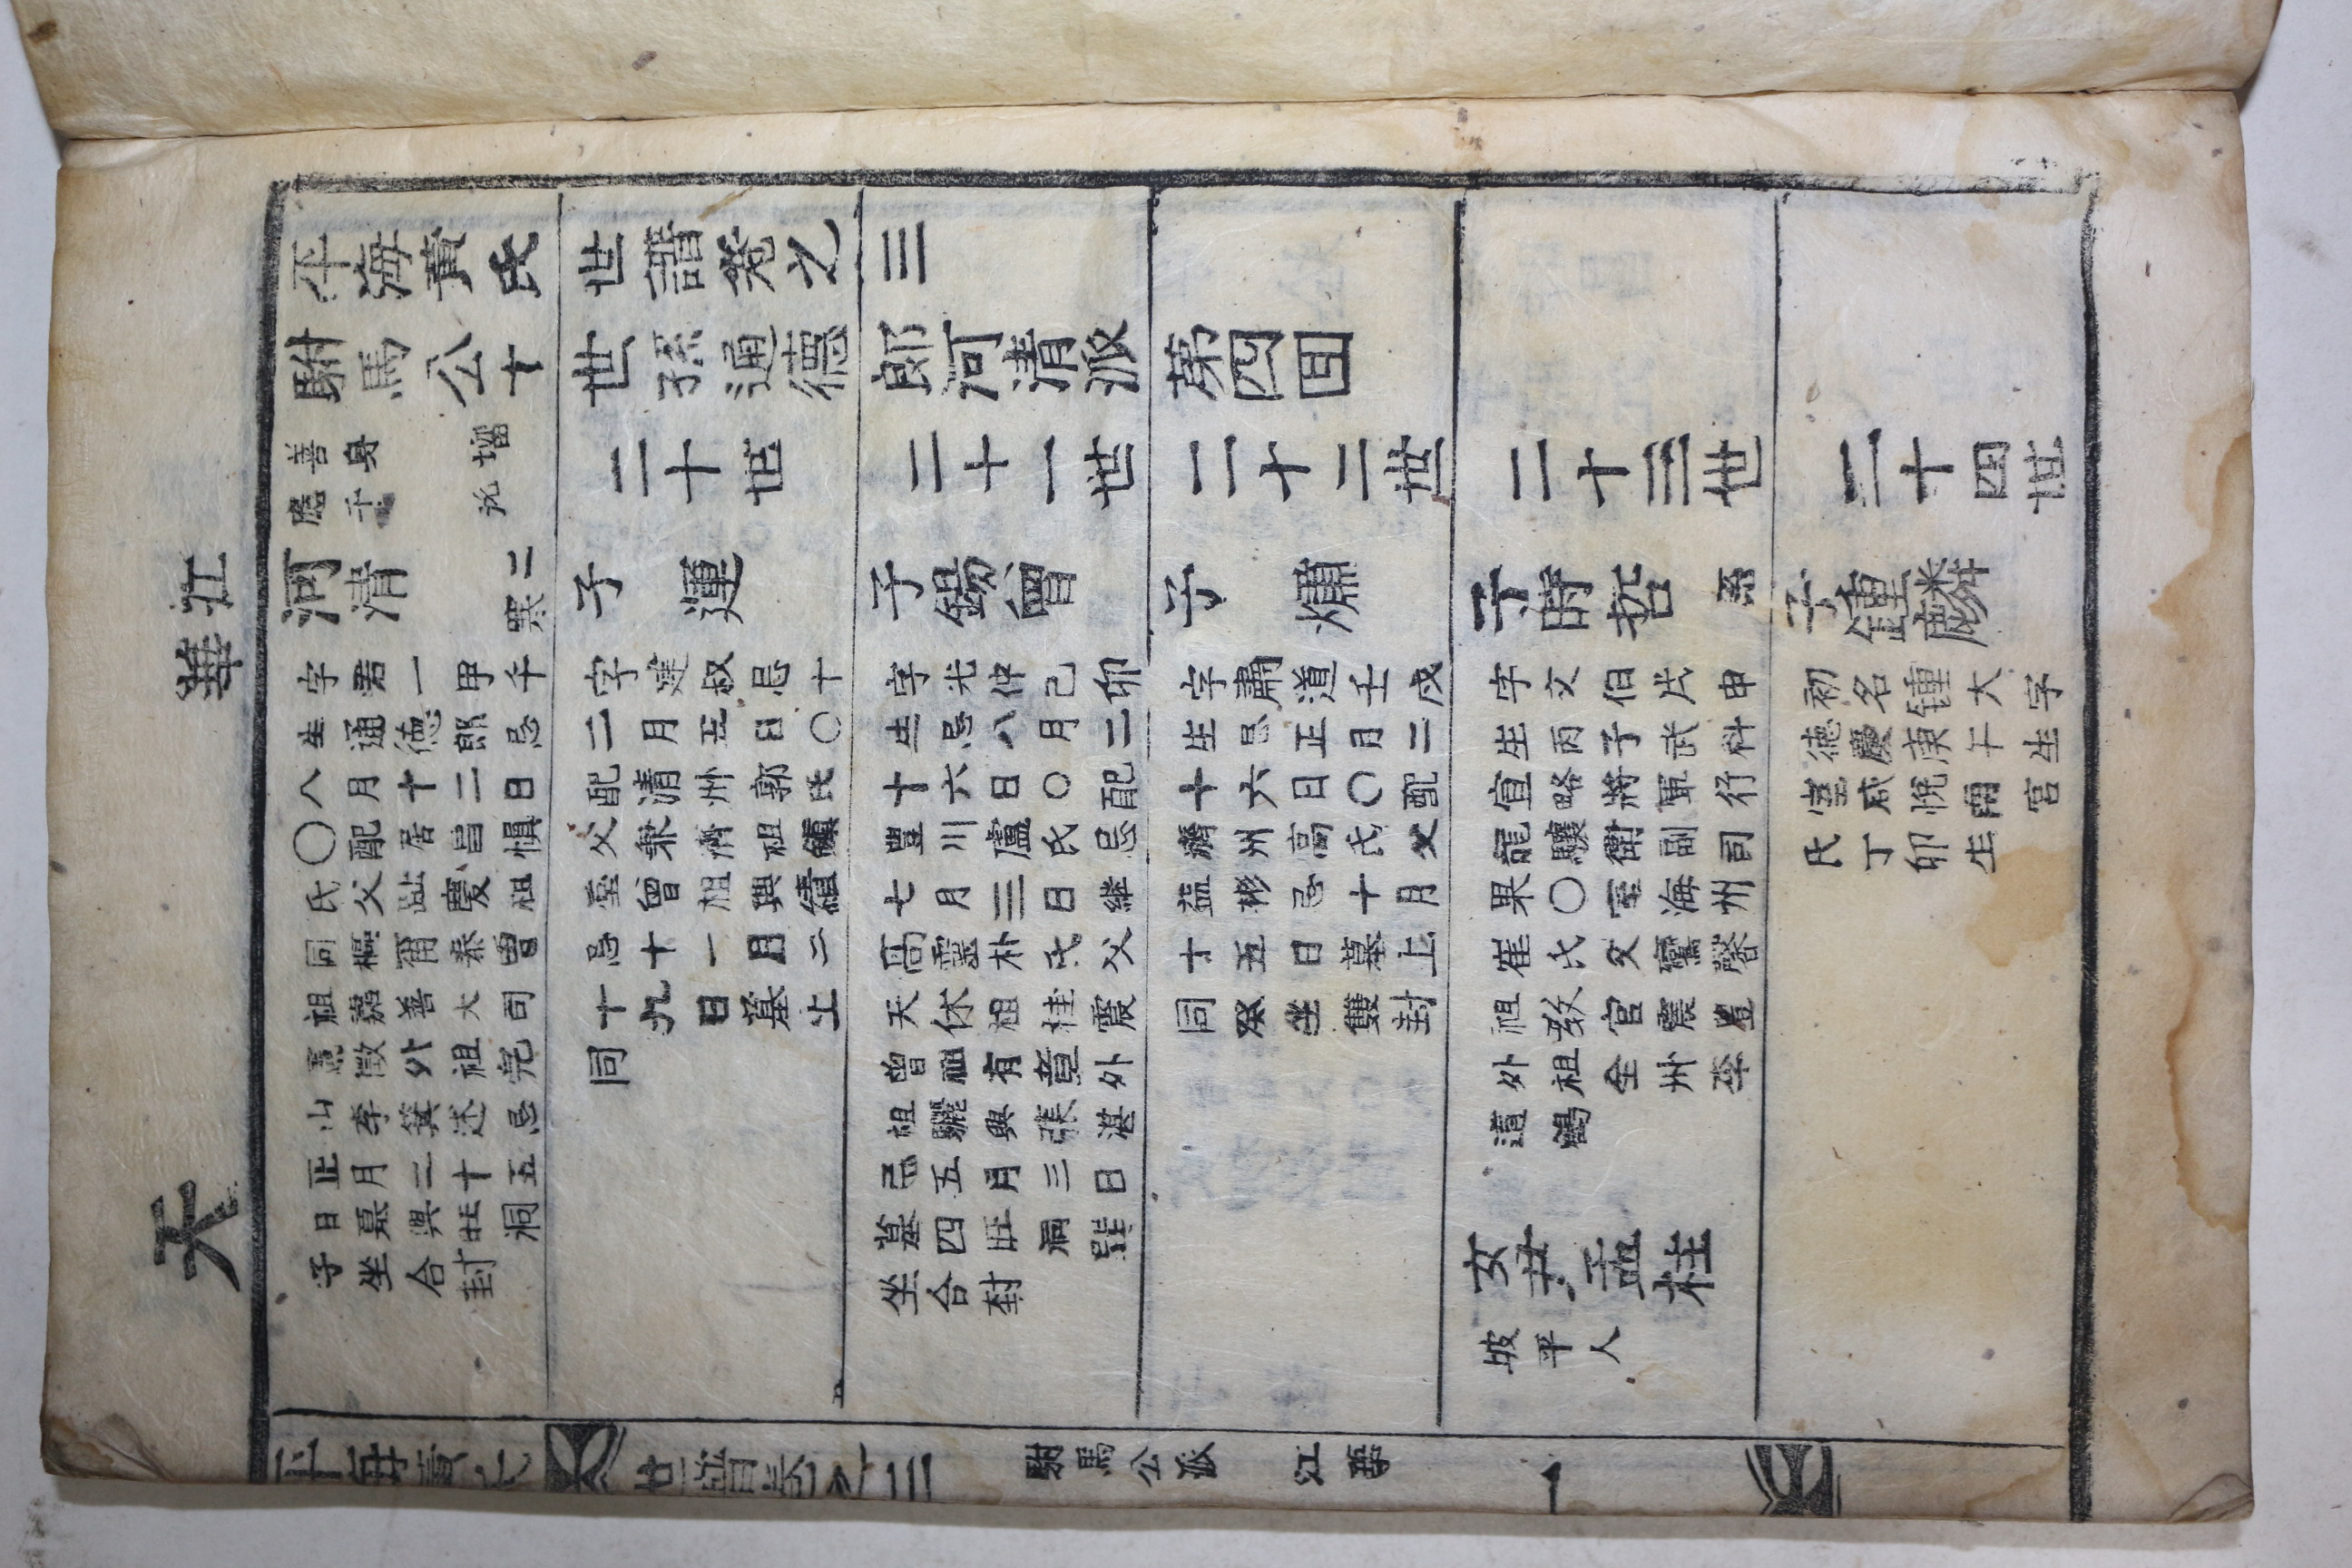 江
華
天
平海黃氏世譜卷之三
駙馬公十世孫通德郎河清派第四囬
善身
應千
二十世
二十一世
二十二世
二十三世
二十四世
河清
二
寒
字君一甲午
生通德郎忌
八月十二日
〇配居昌愼
氏父趾慶祖
同樞爾泰曾
祖嘉善大司
憲徵外祖完
山李箕述忌
正月二十五
日墓興旺洞
子坐合封
子運
字建叔忌十
二月五日〇
配清州郭氏
父秉濟祖鎭
曾祖興績
忌十一月二
十九日墓上
同
子錫曾
字光仲己卯
生忌八月二
十六日〇配
豊川盧氏忌
七月三日継
高靈朴氏父
天休祖桂震
曾祖有章外
祖驪興張湛
忌五月三日
墓四旺洞巽
坐合封
子爌
字肅道壬戌
生忌正月二
十六日〇配
濟州高氏父
益彬忌十月
十五日墓上
同癸坐雙封
子時哲
系
字文伯戊申
生丙子武科
宣略將軍行
龍驤衛副司
果〇室海州
崔氏父鸞馨
祖敎官震豊
外祖全州李
道鶴
女尹孟柱
坡平人
子鍾麟
初名鍾大字
德慶庚午生
室咸悅南宮
氏丁卯生
平海黃氏世譜卷之三
駙馬公派
江華
一